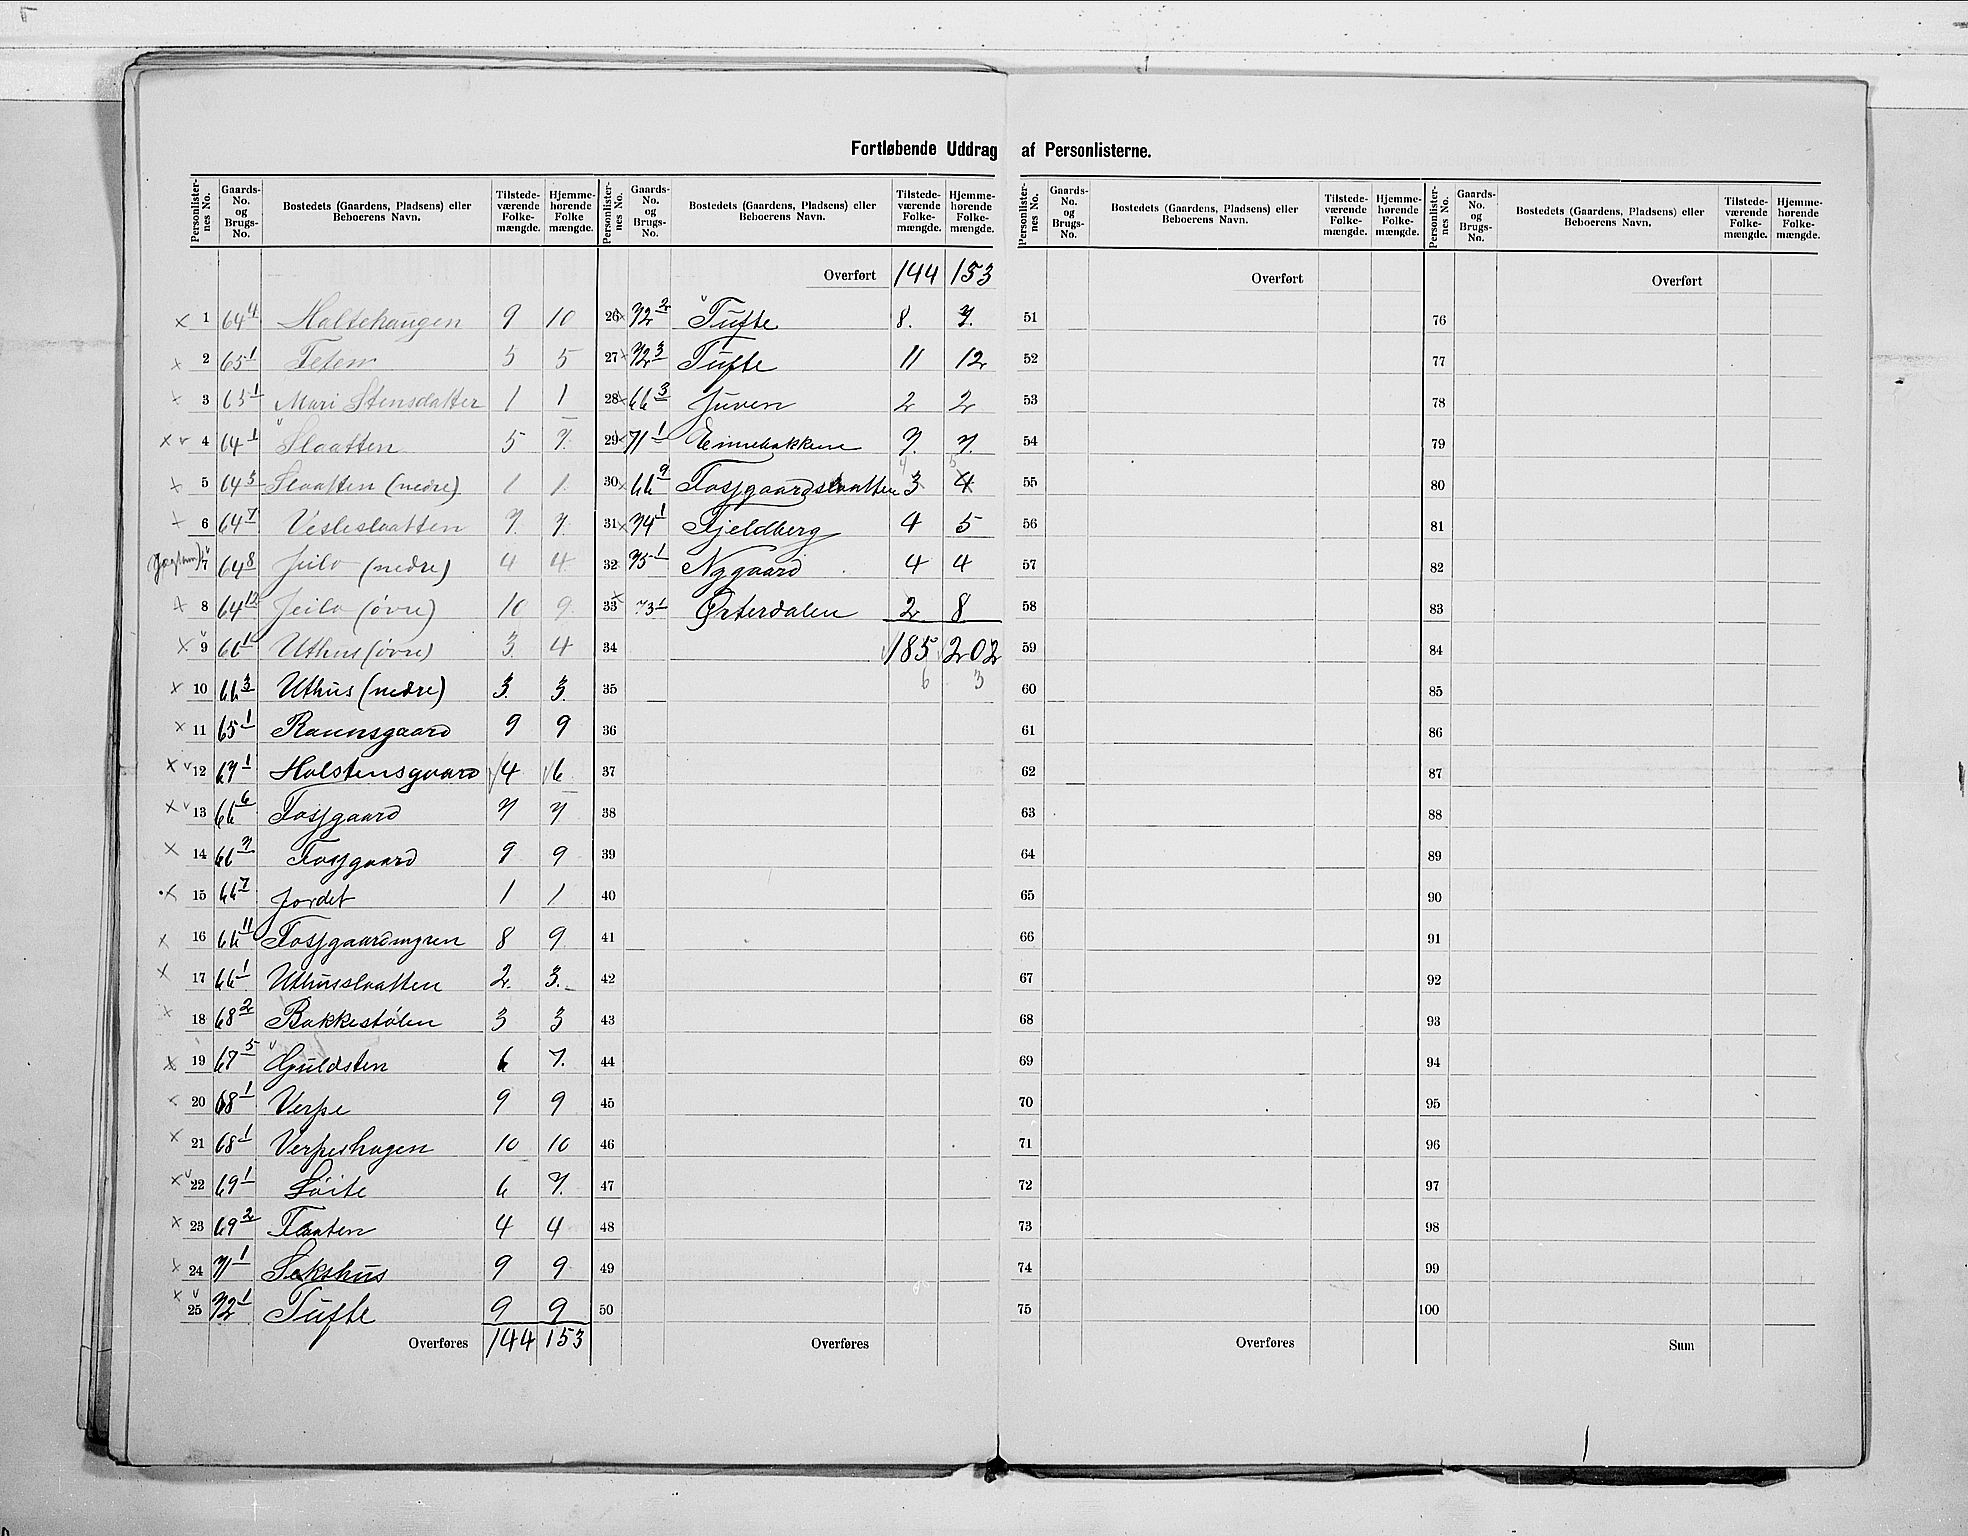 Fortløbende Uddrag af Personlisterne.
Personlister-nes No. Gaards-No. og Brugs-No. Bostedets (Gaardens, Pladsens) eller Beboerens Navn. Tilstede-værende Folke-mængde. Hjemme-hørende Folke mængde.
1 64/4 Haltehaugen 9 10
2 65/1 Teten 5 5
3 65/1 Mari Stensdatter 1 1
4 64/1 Slaatten 5 7.
5 64/3 Slaatten (nedre) 1 1
6 64/7 Vesleslaatten 7. 7.
7 64/8 Jeilo (nedre) 4 4
8 64/12 Jeilo (øvre) 10 9
9 66/1 Uthus (øvre) 3 4
10 66/3 Uthus (nedre) 3 3
11 65/1 Raunsgaard 9 9
12 67/1 Holstensgaard 4 6
13 66/6 Fossgaard 7 7
14 66/7 Fossgaard 9 9
15 66/7 Jordet 1 1
16 66/11 Fossgaardmyren 8 9
17 66/1 Uthusslaatten 2 3.
18 68/2 Bakkestølen 3 3
19 67/5 Guldsten 6 7.
20 68/1 Verpe 9 9
21 68/1 Verpeshagen 10 10
22 69/1 Søite 6 7.
23 69/2 Flaaten 4 4
24 71/1 Sekshus 9 9
25 72/1 Tufte 9 9
Overføres 144 153
Personlister-nes No. Gaards-No. og Brugs-No. Bostedets (Gaardens, Pladsens) eller Beboerens Navn. Tilstede-værende Folke-mængde. Hjemme-hørende Folke-mængde.
Overført 144 153
26 72/2 Tufte 8. 7.
27 72/3 Tufte 11 12
28 66/3 Juven 2 2
29 71/1 Einebakkene 7. 7.
4 5
30 66/9 Fossgaardslaatten 3 4
31 74/1 Fjeldberg 4 5
32 75/1 Nygaard 4 4
33 73/1 Østerdalen 2 8
34 185 202
35 6 3
36
37
38
39
40
41
42
43
44
45
46
47
48
49
50
Overføres
Personlister-nes No. Gaards-No. og Brugs-No. Bostedets (Gaardens, Pladsens) eller Beboerens Navn. Tilstede-værende Folke-mængde. Hjemme-hørende Folke-mængde.
Overført
51
52
53
54
55
56
57
58
59
60
61
62
63
64
65
66
67
68
69
70
71
72
73
74
75
Overføres
Personlister-nes No. Gaards-No. og Brugs-No. Bostedets (Gaardens, Pladsens) eller Beboerens Navn. Tilstede-værende Folke-mængde. Hjemme-hørende Folke-mængde.
Overført
76
77
78
79
80
81
82
83
84
85
86
87
88
89
90
91
92
93
94
95
96
97
98
99
100
Sum